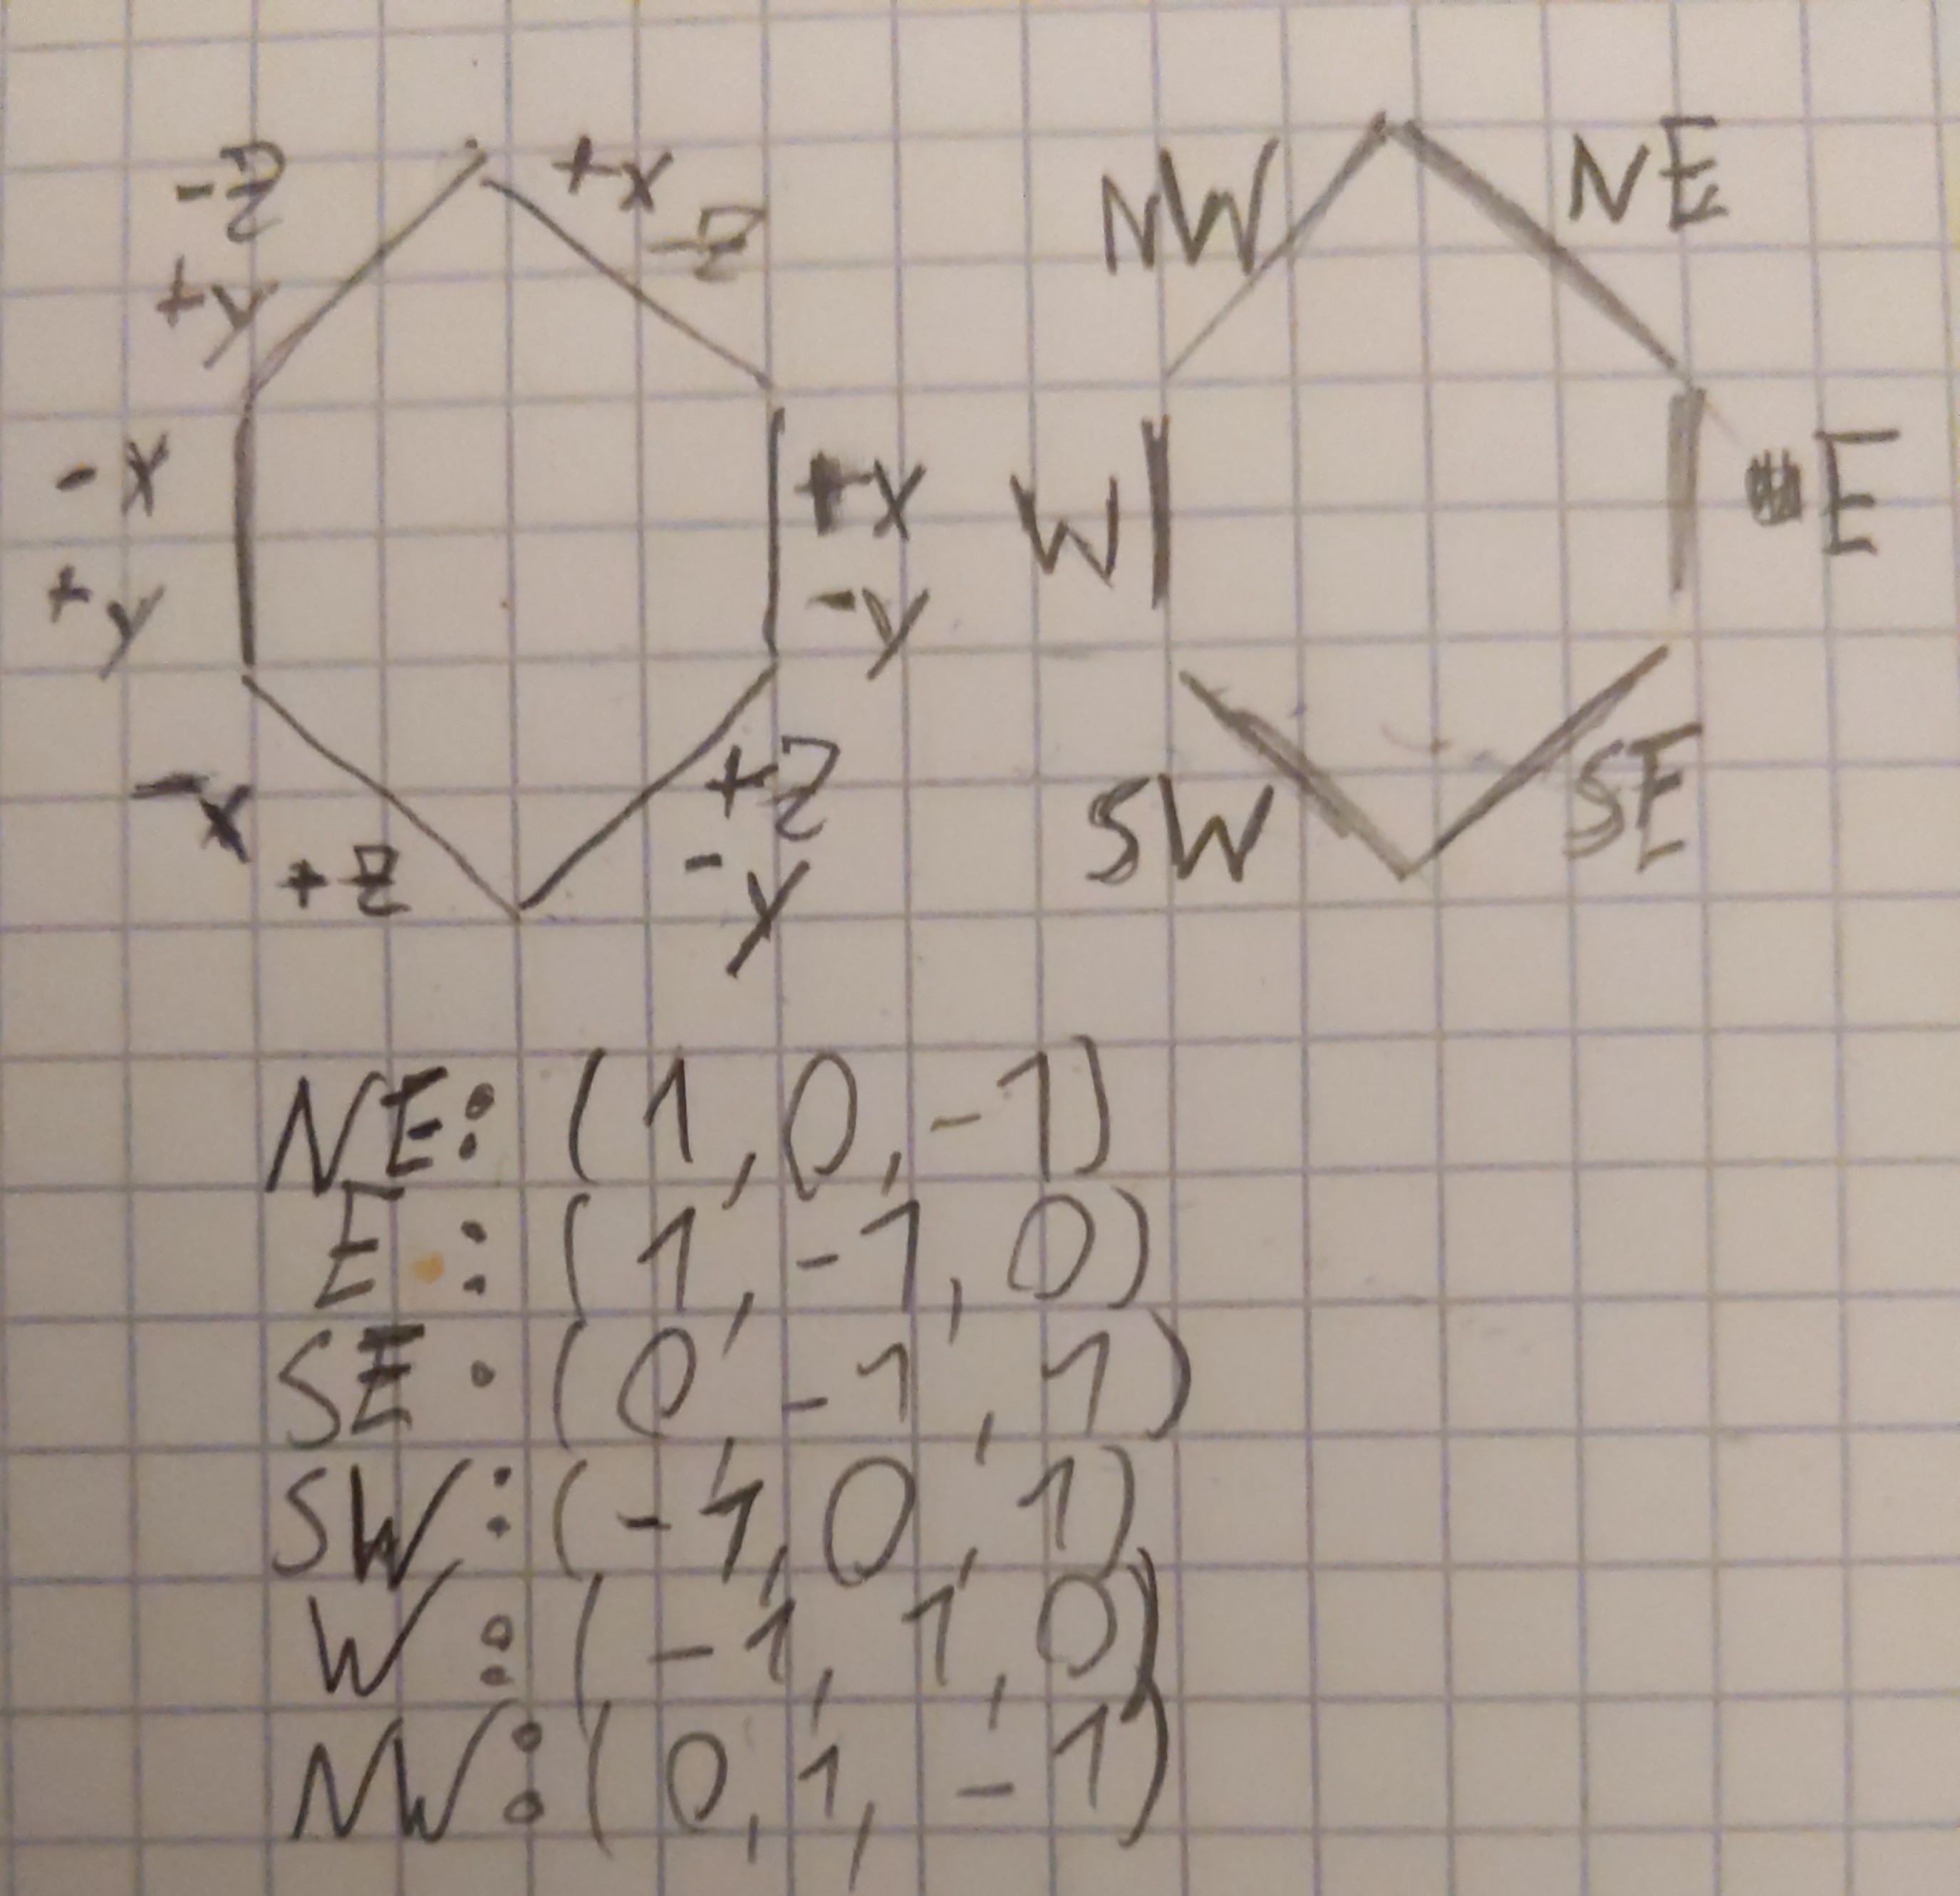 -Z
+Y
-X
+Y
-X
+Z
+X
-Z
+X
-Y
+Z
-Y
NW
NE
W
E
SW
SE
NE: (1, 0, -1)
E : (1, -1, 0)
SE : (0, -1, 1)
SW : (-1, 0, 1)
W : (-1, 1, 0)
NW : (0, 1, -1)